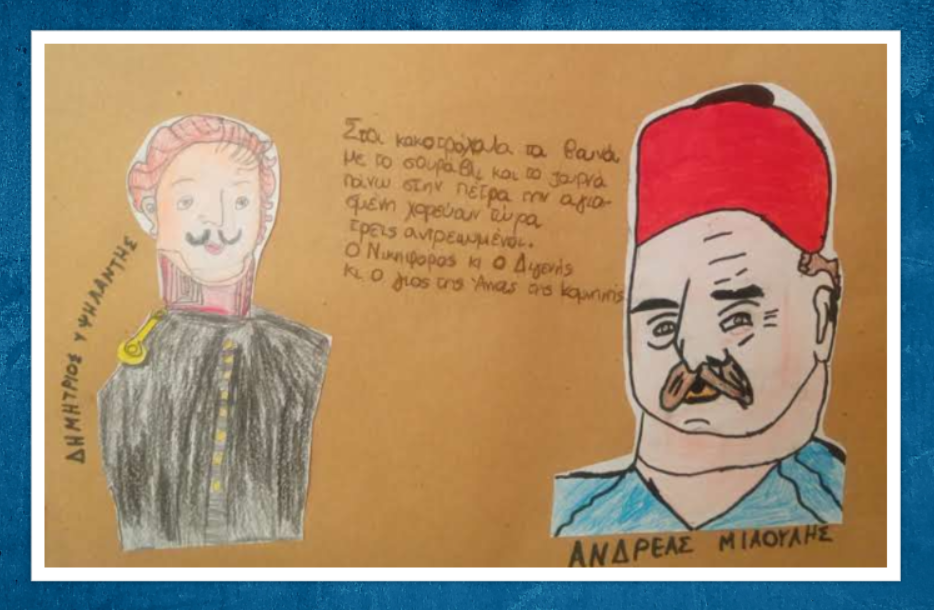 ΔΗΜΗΤΡΙΟΣ ΥΨΗΛΑΝΤΗΣ
Στα κακοτράχαλα τα βουνά
Με το σουραύλι και το ζουρνά
πάνω στην πέτρα την αγια-
σμένη χορεύουν τώρα
τρεις αντρειωμένοι.
Ο Νικηφόρος κι ο Διγενής
κι ο γιος της Άννας της Κομνηνής
ΑΝΔΡΕΑΣ ΜΙΑΟΥΛΗΣ